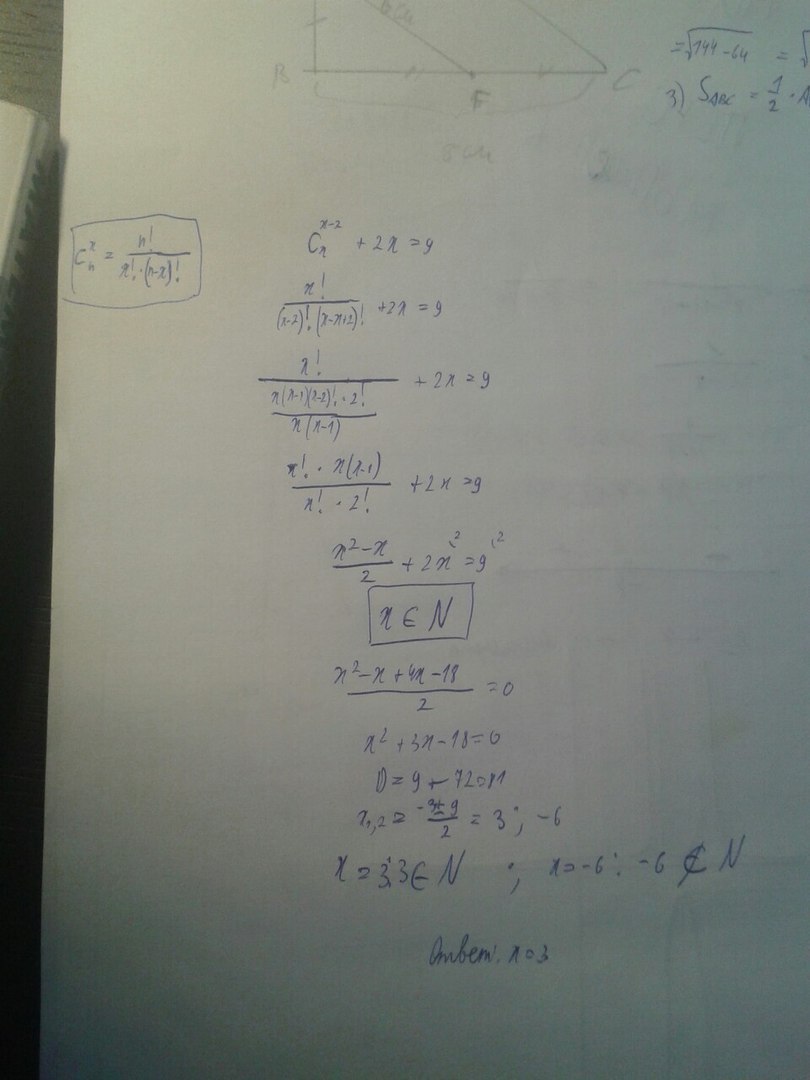 6см
B F C
8см
=√144-64 = √
3) S_ABC = 1/2 · A
C_n^x = n!/(x!·(n-x)!)
C_x^(x-2) + 2x = 9
x!/((x-2)!·(x-x+2)!) + 2x = 9
x!/((x(x-1)(x-2)!·2!)/(x(x-1))) + 2x = 9
(x!·x(x-1))/(x!·2!) + 2x = 9
(x²-x)/2 + 2x^(\2 = 9^(\2
x ∈ N
(x²-x+4x-18)/2 = 0
x²+3x-18=0
D = 9+72=81
x₁,₂ = (-3±9)/2 = 3; -6
x = 3: 3 ∈ N ; x = -6: -6 ∉ N
Ответ: x=3